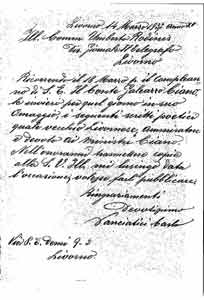 Livorno 14 Marzo 1937 anno XV
Ill. Comm. Umberto
Pel Giornale Il Telegrafo
Livorno
Ricorrendo il 18 Marzo p. il complean
no di S. E. Il Conte Galeazzo Ciano,
Le invierò per quel giorno in suo
Omaggio, i seguenti scritti poetici
quale vecchio Livornese, Ammiratore
e devoto al Ministro Ciano.
trasmettere copia
alla S. V. Ill. mi lusingo data
l'occasione, voler farli pubblicare.
Ringraziamenti
Devotissimo
Lanciatici Carlo
Livorno